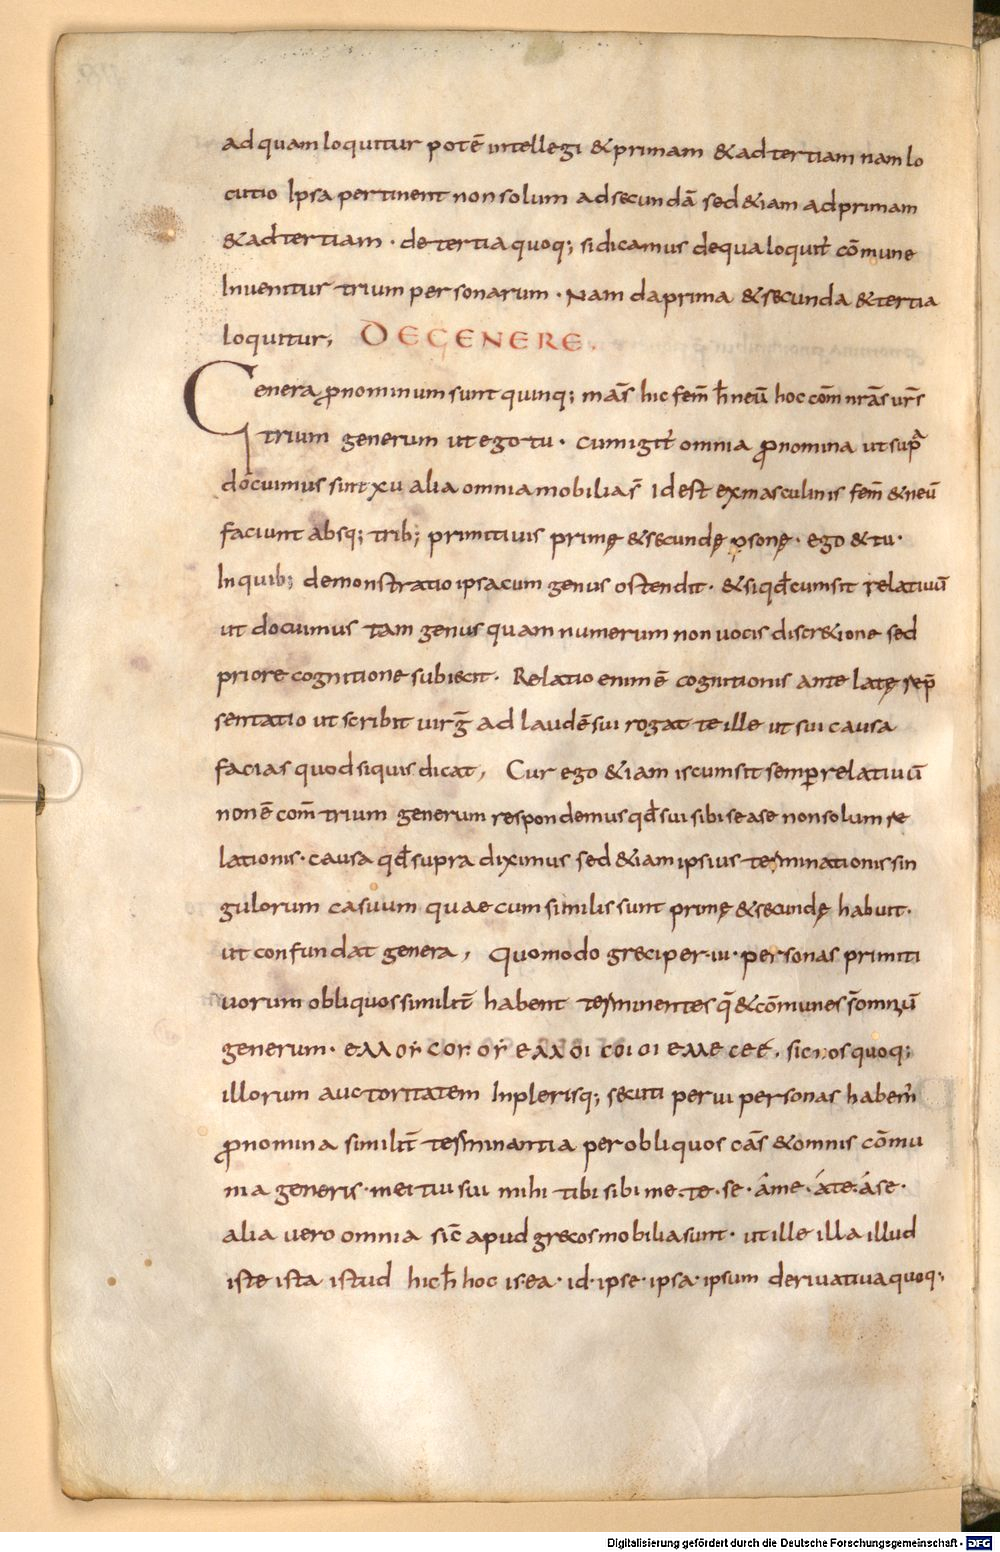 ad quam loquitur potē intellegi & primam & ad tertiam nam lo
cutio Ipsa pertinent non solum ad secundā sed &iam ad primam
& ad tertiam · de tertia quoq; si dicamus de qua loquit̄ cōmune
Inuenitur trium personarum · Nam da prima & secunda & tertia
loquitur; DE GENERE.
Genera ꝓnominum sunt quinq; mas̄ hic fem̄ h̄ neū hoc com̄ nr̄as ur̄s
trium generum ut ego tu · cum igit̄ omnia ꝓnomina ut supᷓ
docuimus sint xu alia omnia mobilia s̄ Id est ex masculinis fem̄ & neū
faciunt absq; trib; primitiuis primę & secundę ꝑsonę · ego & tu ·
In quib; demonstratio ipsa cum genus ostendit · & si qđ cum sit relatiuū
ut docuimus tam genus quam numerum non uocis discr&ione sed
priore cognitione subiecit · Relatio enim ē cognitionis ante latę rep̄
sentatio ut scribit uirḡ ad laudē sui rogat te ille ut sui causa
facias quod siquis dicat, Cur ego &iam is cum sit semper relatiuū
non ē com̄ trium generum respondemus qđ sui sibi se a se non solum re
lationis · causa qđ supra diximus sed &iam ipsius terminationis sin
gulorum casuum quae cum similis sunt primę & secundę habuit ·
ut confundat genera, Quomodo greci per · iii · personas primiti
uorum obliquos similit̄ habent terminentes q̄ & cōmunes s̄ omniū
generum · ελλ or̄ cor· or̄ ελλ οι coi oi ελλε cε ε. sic nos quoq;
illorum auctoritatem In plerisq; secuti per iii personas habem̄
ꝓnomina similit̄ terminantia per obliquos cās & omnis cōmu
nia generis · mei tui sui mihi tibi sibi me · te · se · á me · á te · á se ·
alia uero omnia sic̄ apud grecos mobilia sunt · ut ille illa illud
iste ista istud hic h̄ hoc is · ea · id · ipse · ipsa · ipsum deriuatiua quoq;
Digitalisierung gefördert durch die Deutsche Forschungsgemeinschaft - DFG